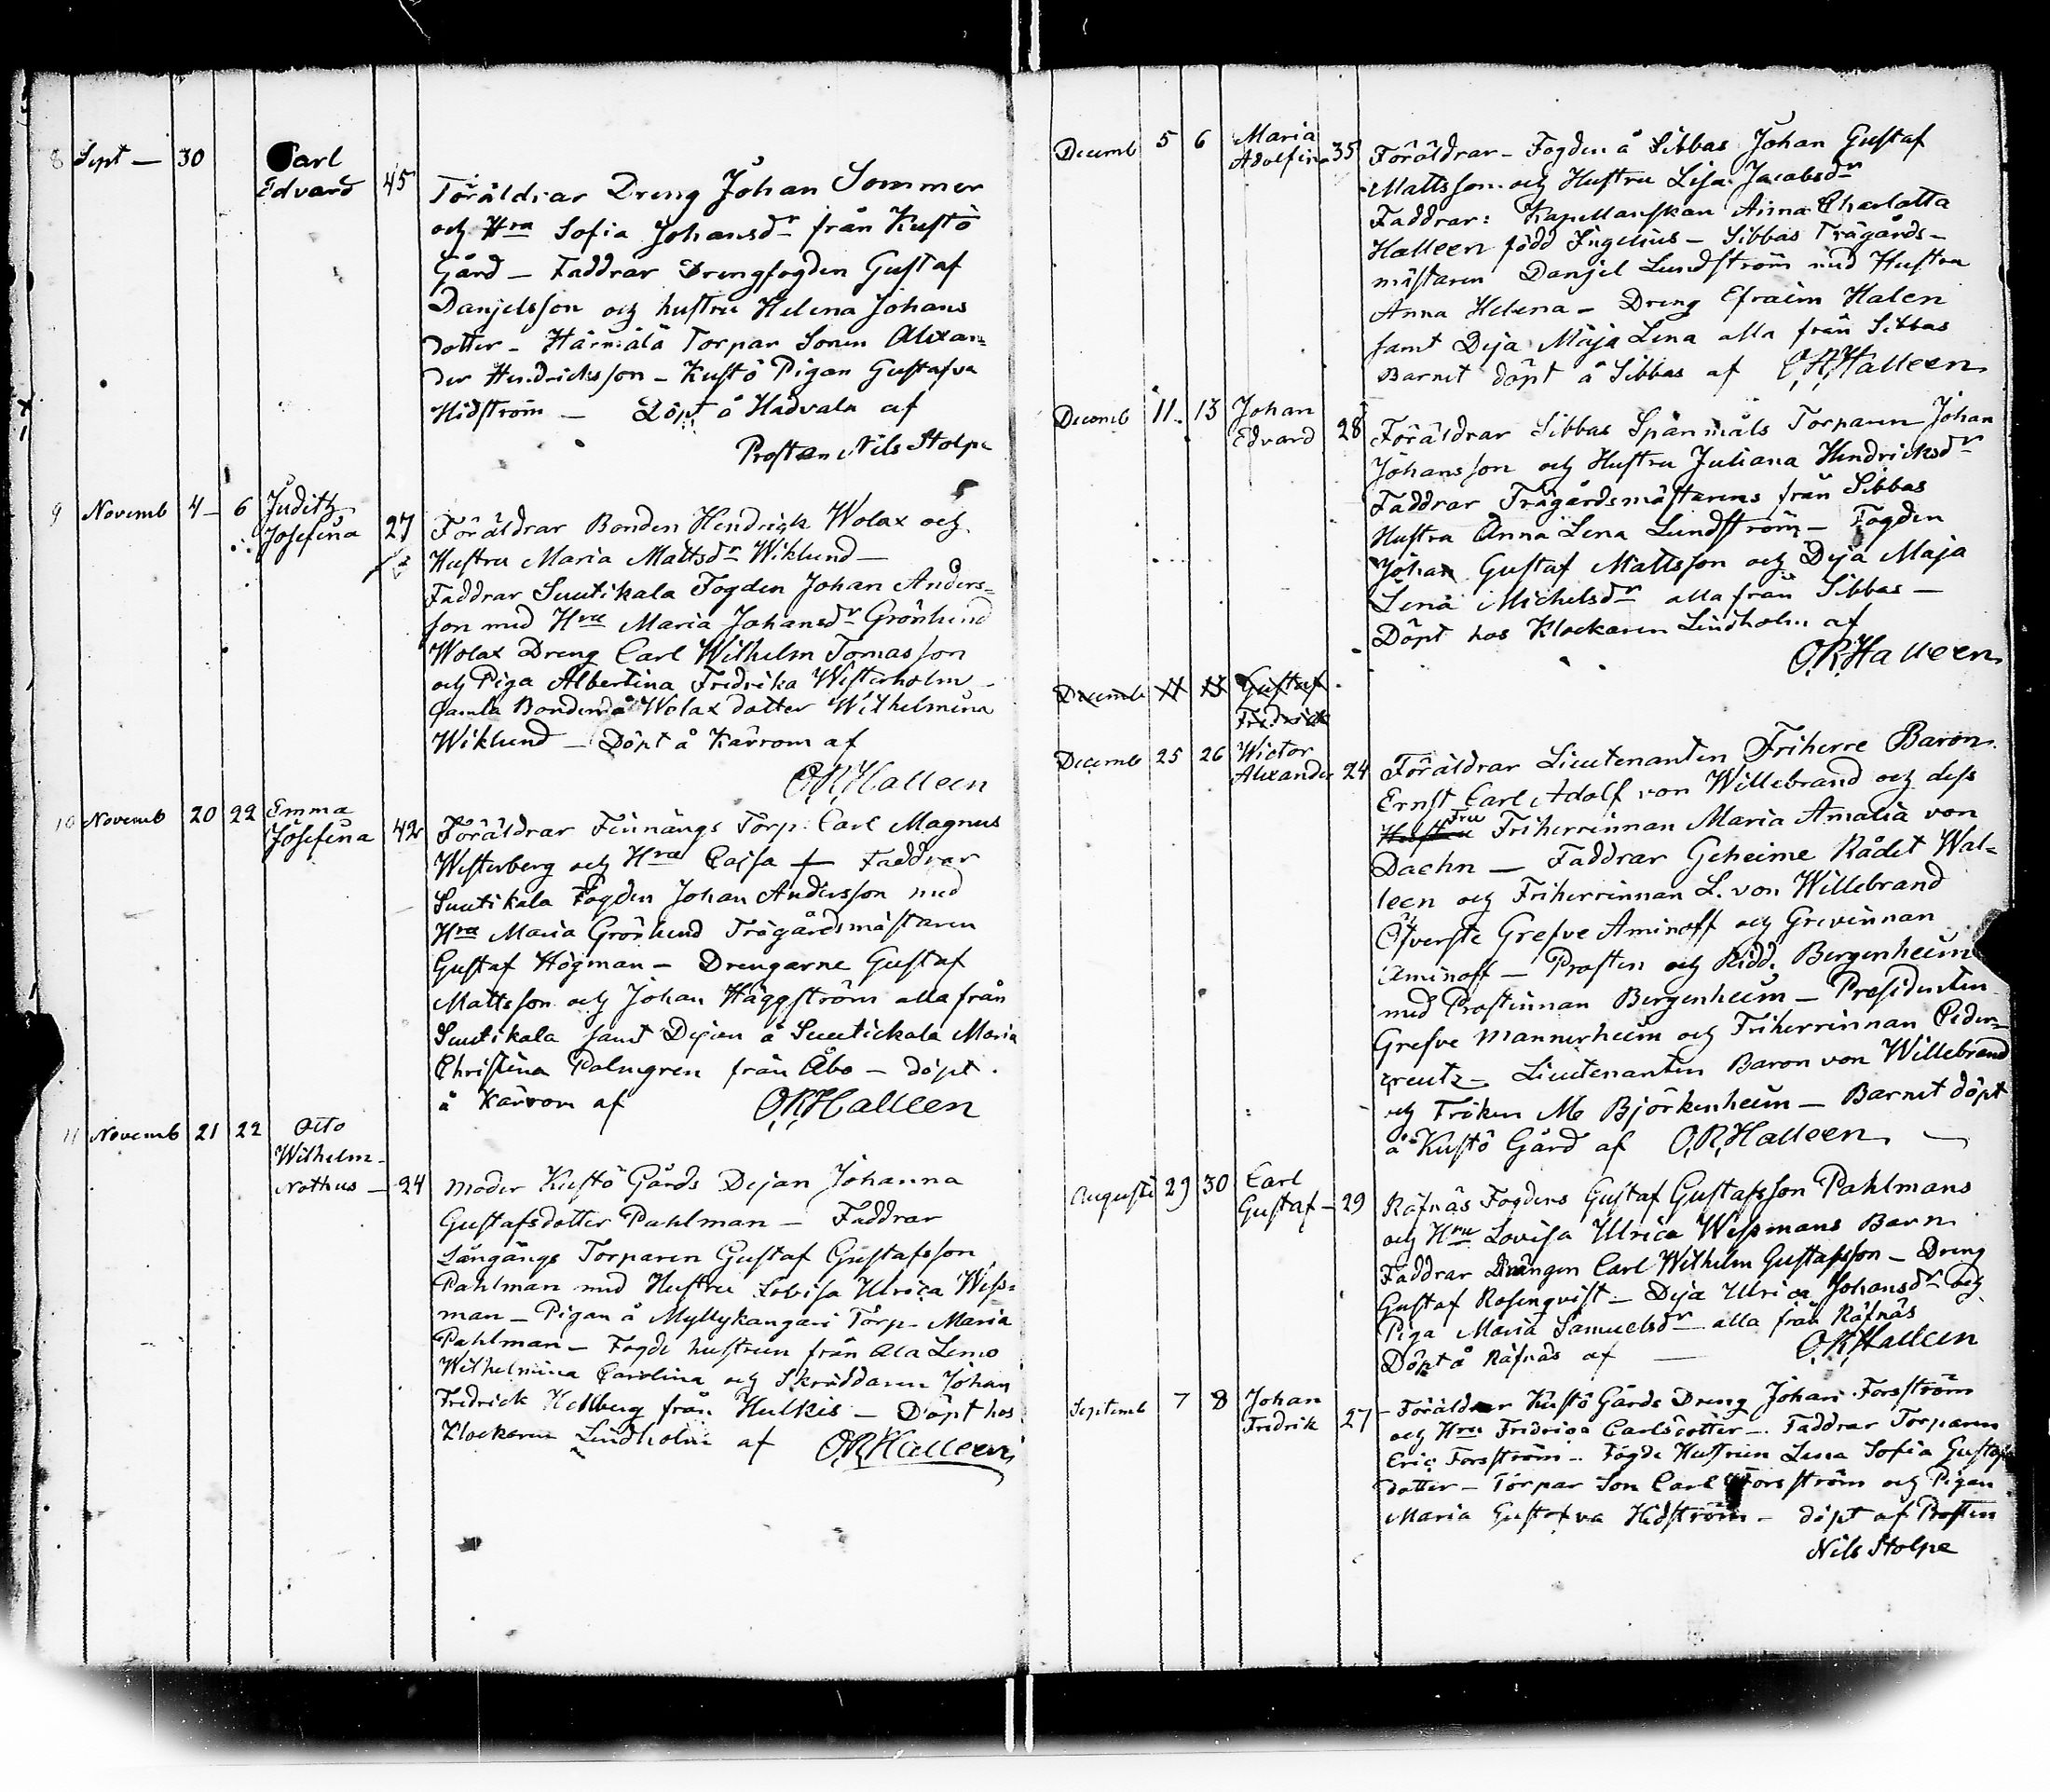 8 Sept — 30 Carl
Edvard 45 Föräldrar Dreng Johan Sommer
och Hra Sofia Johansdr från Kustö
Gård — Faddrar Drengfogden Gustaf
Danjelsson och hustru Helena Johans
dotter — Härmälä Torpar Sonen Alexan=
der Hendricksson — Kustö Pigan Gustafva
Hidström — Döpt å Hadvala af
Prosten Nils Stolpe
9 Novemb 4 — 6 Judith
Josefina 27 Föräldrar Bonden Hendrich Wolax och
Hustru Maria Mattsdr Wiklund —
Faddrar Suutikala Fogden Johan Anders=
son med Hru Maria Johansdr Grönlund
Wolax Dreng Carl Wilhelm Tomasson
och Piga Albertina Fredrika Westerholm
Gamla Bondens å Wolax dotter Wilhelmina
Wiklund — Döpt å Kärrom af
O.R. Halleen
10 Novemb 20 22 Emma
Josefina 42 Föräldrar Finnängs Torp. Carl Magnus
Westerberg och Hra Cajsa — Faddrar
Suutikala Fogden Johan Andersson med
Hra Maria Grönlund Trägårdsmästaren
Gustaf Högman — Drengarne Gustaf
Mattsson och Johan Häggström alla från
Suutikala samt Dejan å Suutickala Maria
Christina Palmgren från Åbo — döpt
å Kärrom af O.R. Halleen
11 Novemb 21 22 Otto
Wilhelm
Nothus — 24 Moder Kustö Gårds Dejan Johanna
Gustafsdotter Pahlman — Faddrar
Långängs Torparen Gustaf Gustafsson
Pahlman med Hustru Lovisa Ulrica Wess=
man — Pigan å Myllykangari Torp. Maria
Pahlman — Fogde hustrun från Ala Lemo
Wilhelmina Carolina och Skräddaren Johan
Fredrick Hellberg från Hulkis — Döpt hos
Klockaren Lindholm af O.R. Halleen
Decemb 5 6 Maria
Adolfina 35 Föräldrar — Fogden å Sibbas Johan Gustaf
Mattsson och Hustru Lisa Jacobsdr
Faddrar: Kapellanskan Anna Charlotta
Halleen född Ingelius — Sibbas Trägårds-
mästaren Danjel Lundström med Hustru
Anna Helena — Dreng Efraim Halen
samt Deja Maja Lena alla från Sibbas
Barnet döpt å Sibbas af O.R. Halleen
Decemb 11 13 Johan
Edvard 28 Föräldrar Sibbas Spännmåls Torparen Johan
Johansson och Hustru Juliana Hendricksdr
Faddrar Trägårdsmästarens från Sibbas
Hustru Anna Lena Lundström — Fogden
Johan Gustaf Mattsson och Deja Maja
Lena Michelsdr alla från Sibbas —
Döpt hos Klockaren Lindholm af
O.R. Halleen
Decemb 11 13 Gustaf
Fredrick
Decemb 25 26 Wictor
Alexander 24 Föräldrar Lieutenanten Friherre Baron
Ernst Carl Adolf von Willebrand och dess
Hustru Fru Friherrinnan Maria Amalia von
Daehn — Faddrar Geheime Rådet Wal=
leen och Friherrinnan L. von Willebrand
Öfverste Grefve Aminoff och Grevinnan
Aminoff — Prosten och Ridd. Bergenheim
med Prostinnan Bergenheim — Presidenten
Grefve Mannerheim och Friherrinnan Ceder=
creutz — Lieutenanten Baron von Willebrand
och Fröken M Björkenheim — Barnet döpt
å Kustö Gård af O.R. Halleen —
Augusti 29 30 Carl
Gustaf — 29 Räfnäs Fogdens Gustaf Gustafsson Pahlmans
och Hru Lovisa Ulrica Wessmans Barn
Faddrar Drängen Carl Wilhelm Gustafsson — Dreng
Gustaf Rosenqvist — Deja Ulrica Johansdr och
Piga Maria Samuelsdr alla från Räfnäs
Döpt å Räfnäs af — O.R. Halleen
Septemb 7 8 Johan
Fredrik 27 Föräldrar Kustö Gårds Dreng Johan Forsström
och Hru Fredrica Carlsdotter — Faddrar Torparen
Eric Forsström — Fogde Hustrun Lena Sofia Gustafs
dotter — Torpar Son Carl Forsström och Pigan
Maria Gustafva Hidström — döpt af Prosten
Nils Stolpe